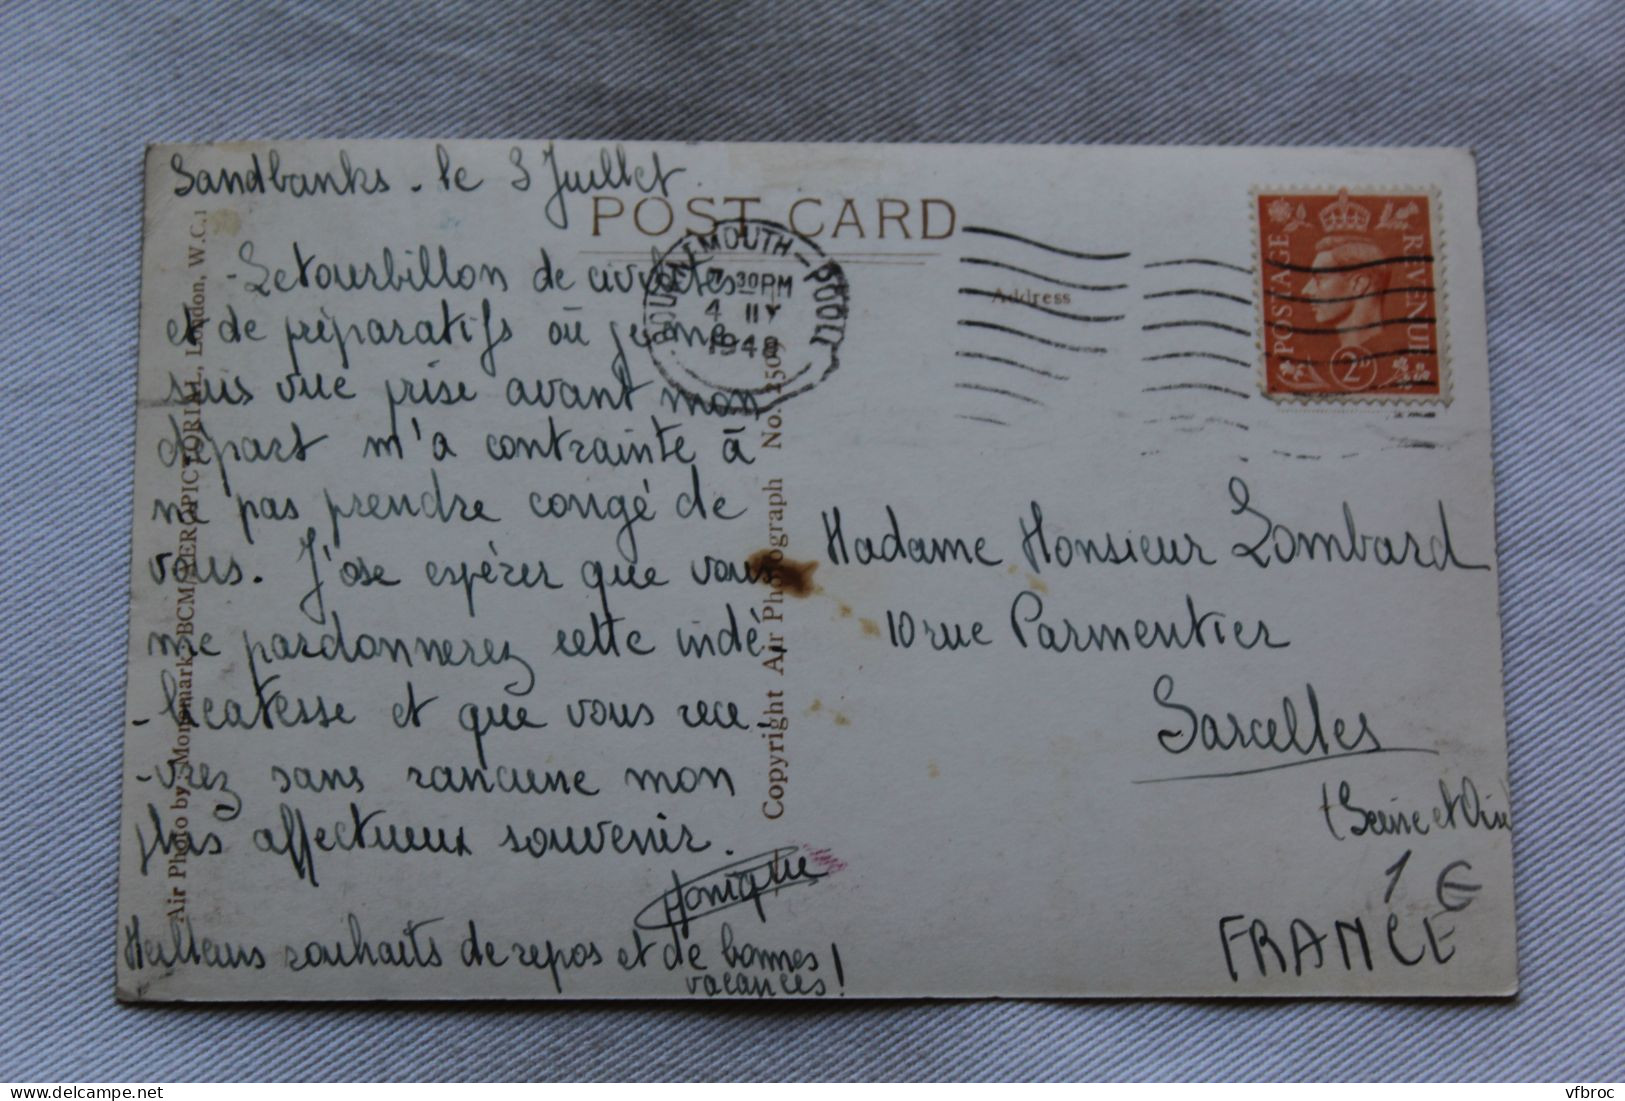 Sandbanks - le 3 Juillet
POST CARD
- Le tourbillon de
et de préparatifs où je me
suis vue prise avant mon
départ m'a contrainte à
ne pas prendre congé de
vous. J'ose espérer que vous
me pardonnerez cette indé
- licatesse et que vous rece -
- vrez sans rancune mon
plus affectueux souvenir.
Monique
Meilleurs souhaits de repos et de bonnes
vacances !
Air Photo by: Monomark: BCM/AEROPICTORIAL, London, W.C.1
Copyright Air Photograph No.
BOURNEMOUTH - POOLE
7 30PM
4
1948
Address
POSTAGE
REVENUE
2D
Madame Monsieur Lombard
10 rue Parmentier
Sarcelles
(Seine et Oise
1 €
FRANCE
www.delcampe.net
vfbroc